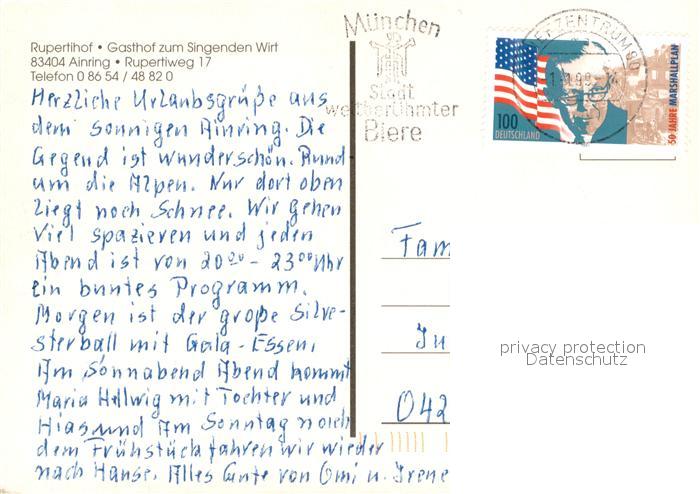 Rupertihof • Gasthof zum Singenden Wirt
83404 Ainring • Rupertiweg 17
Telefon 0 86 54 / 48 82 0
Herzliche Urlaubsgrüße aus
dem sonnigen Ainring. Die
Gegend ist wunderschön. Rund
um die Alpen. Nur dort oben
liegt noch Schnee. Wir gehen
viel spazieren und jeden
Abend ist von 20⁰⁰ - 23⁰⁰ Uhr
ein buntes Programm.
Morgen ist der große Silve-
sterball mit Gala-Essen,
Am Sonnabend Abend kommt
Maria Hellwig mit Tochter und
Hias und Am Sonntag noch
dem Frühstück fahren wir wieder
nach Hause. Alles Gute von Omi u. Irene
München
Stadt
weltberühmter
Biere
BRIEFZENTRUM
100
DEUTSCHLAND
50 JAHRE MARSHALLPLAN
Fam
Ju
042
privacy protection
Datenschutz